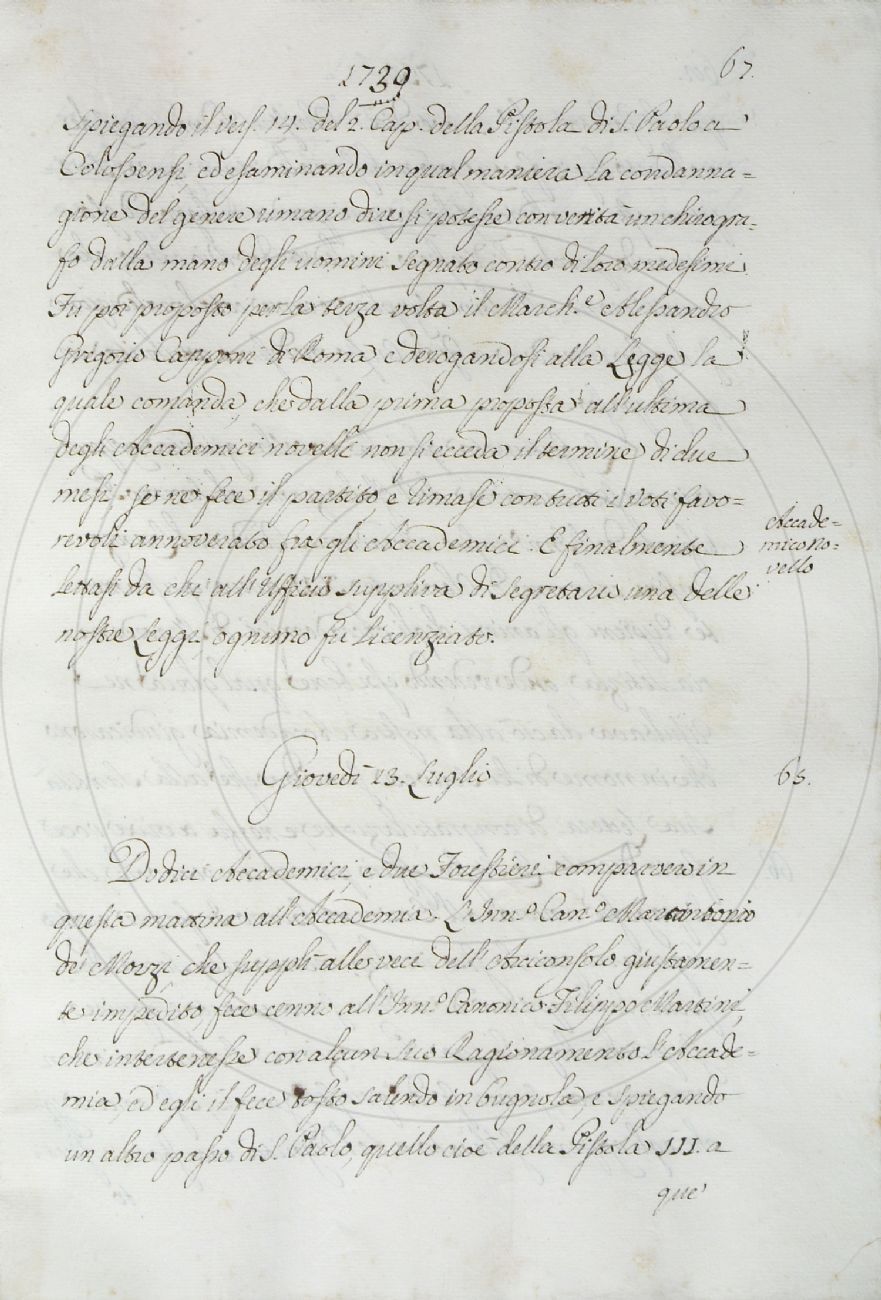 1739
67.
spiegando il vers. 14. del 2. Cap. della Pistola di S. Paolo a
Colossensi, ed esaminando in qual maniera la condanna=
gione del genere umano dire si potesse con verità un chirogra=
fo dalla mano degli uomini segnato contro di loro medesimi.
Fu poi proposto per la terza volta il March.e Alessandro
Gregorio Capponi di Roma e derogandosi alla Legge la
quale comanda, che dalla prima proposta all'ultima
degli Accademici novelli non si ecceda il termine di due
mesi, se ne fece il partito, e rimase con tutti i voti favo=
revoli annoverato fra gli Accademici. E finalmente
lettasi da chi all'Ufficio suppliva di Segretario una delle
nostre Leggi ognuno fu licenziato.
Accade=
mico no=
vello
Giovedì 23. Luglio
68.
Dodici Accademici, e due Forestieri comparvero in
questa mattina all'Accademia. L'Inn.o Can.o Marcantonio
de' Mozzi, che supplì alle veci dell'Arciconsolo giustamen=
te impedito fece cenno all'Inn.o Canonico Filippo Martini,
che intertenesse con alcun suo Ragionamento l'Accade=
mia, ed egli il fece tosto salendo in bugnola, e spiegando
un altro passo di S. Paolo, quello cioè della Pistola III. a
que'